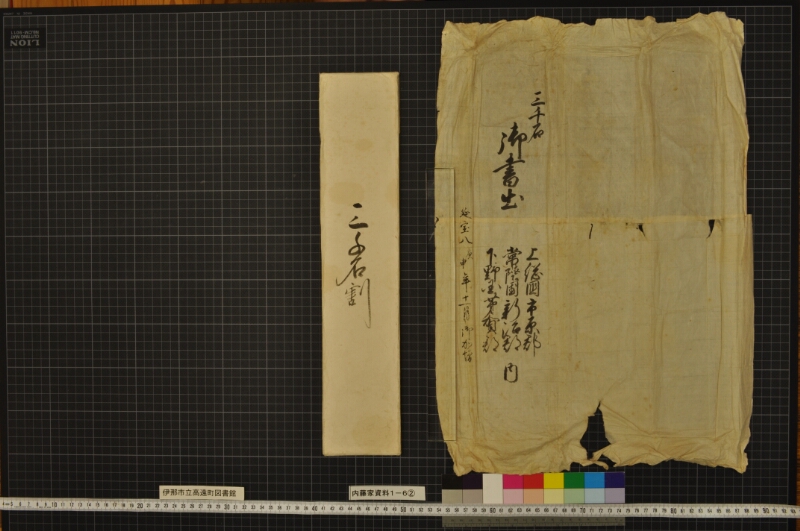 三千石
御書出
上総國市原郡
常陸國新治郡
下野國芳賀郡
内
延宝八庚申年十一月
三千石割
伊那市立高遠町図書館
内藤家資料1-6②
LION